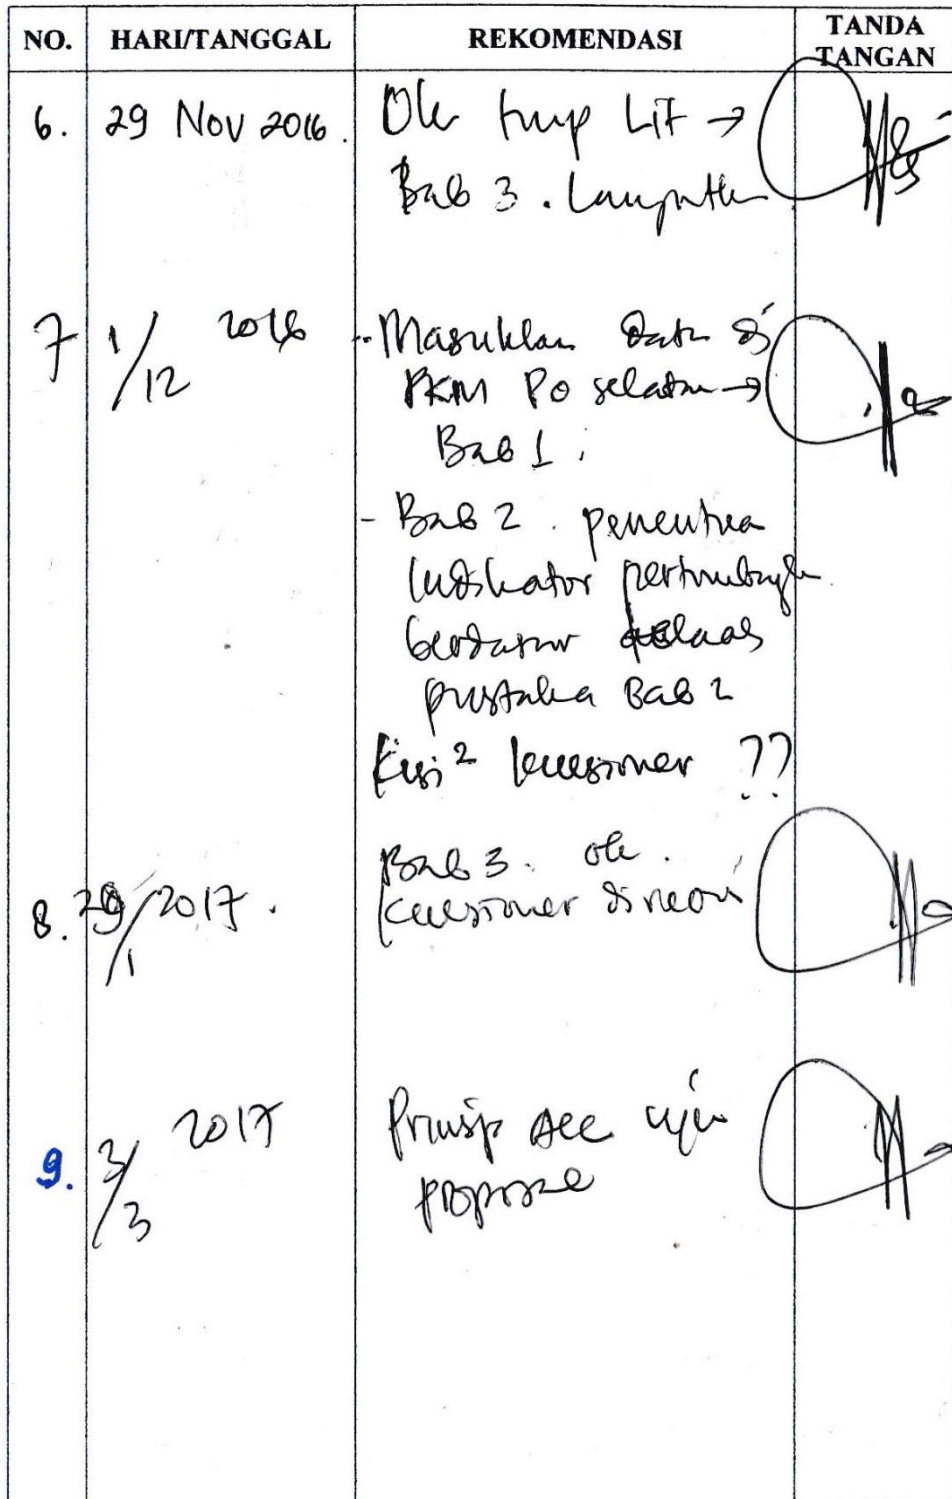 NO. HARI/TANGGAL REKOMENDASI TANDA TANGAN
6. 29 Nov 2016. Ok Lit →
Bab 3. Lanjutkan
7 1/12 2016 - Masukkan data di
PKM Po selatan →
Bab 1.
- Bab 2. penentuan
indikator pertumbuhan
berdasar
pustaka Bab 2
Kisi² kuesioner ??
Bab 3. ok.
8. 29/1 2017. kuesioner direvisi
9. 3/3 2017 Prinsip Acc ujian
proposal